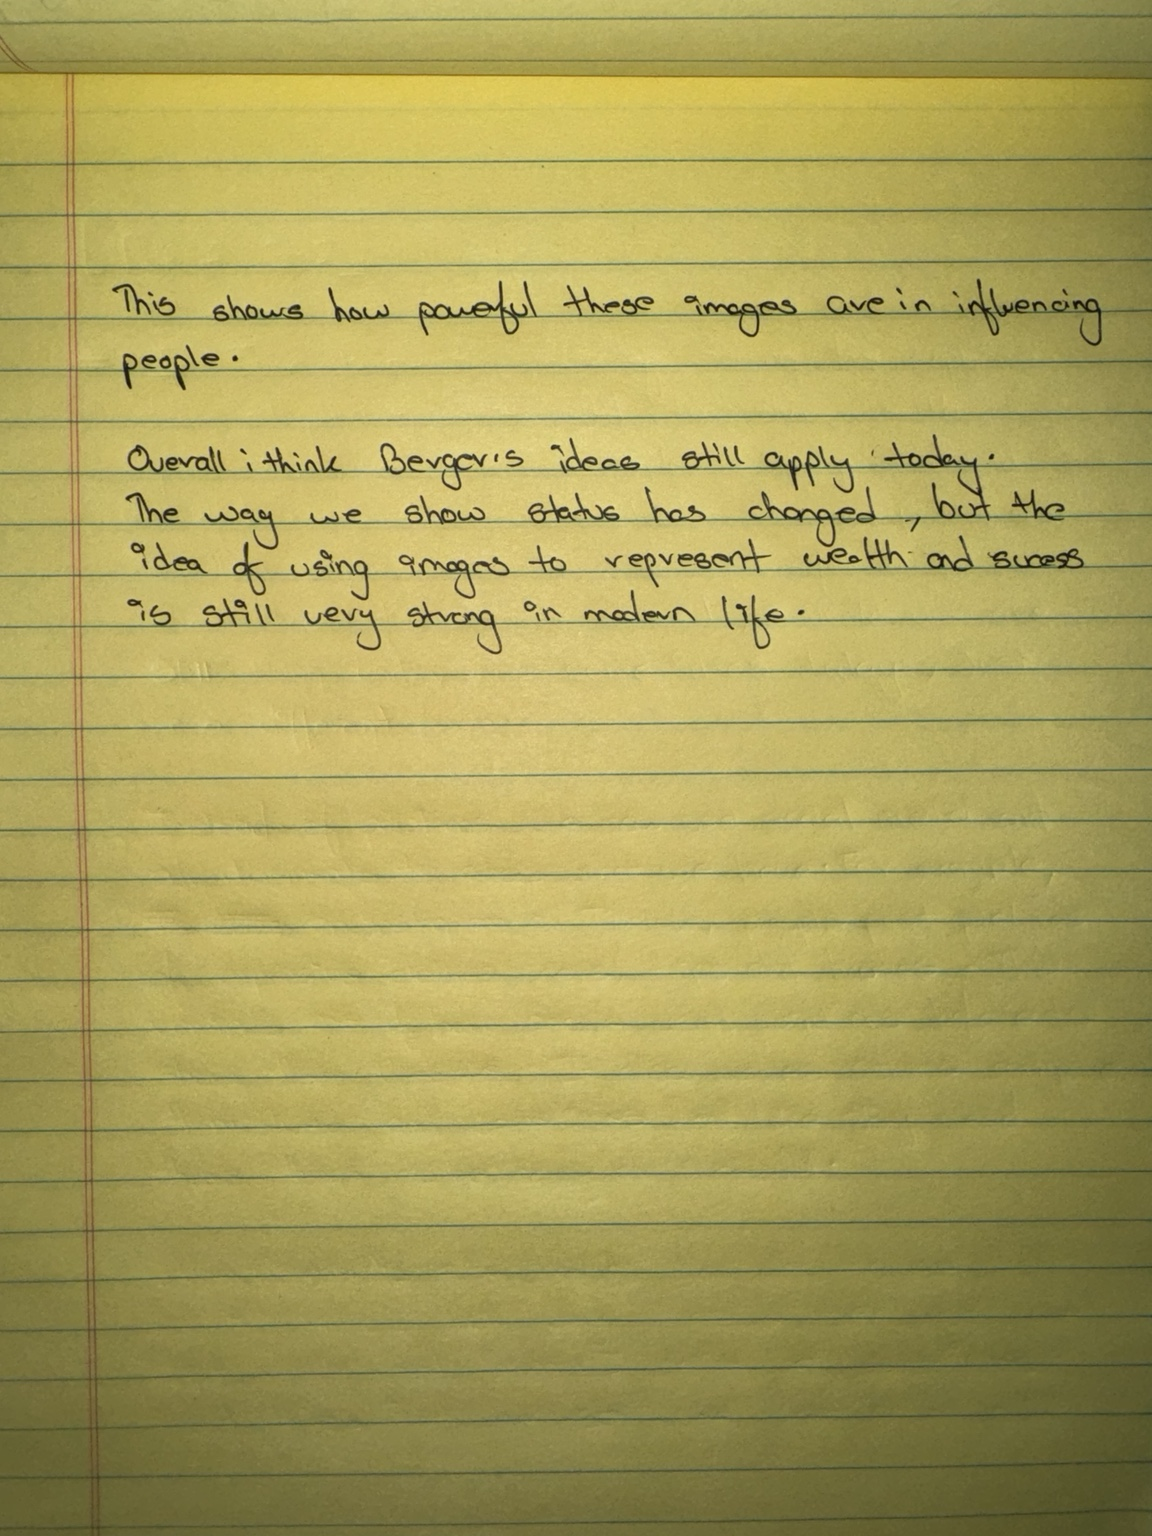 This shows how powerful these images are in influencing
people.
Overall i think Berger's ideas still apply today.
The way we show status has changed, but the
idea of using images to represent wealth and sucess
is still very strong in modern life.